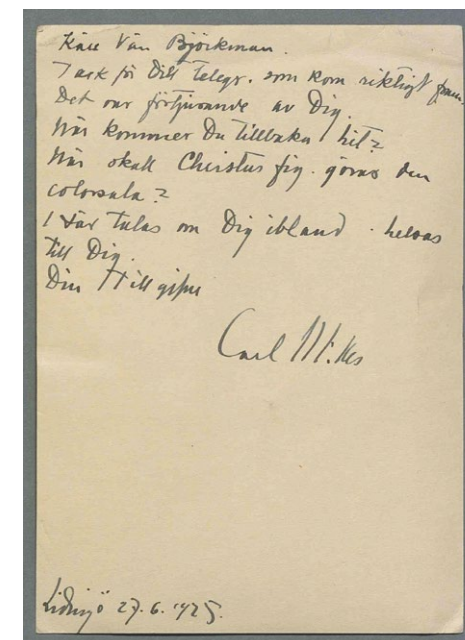 Käre Vän Björkman.
Tack för Ditt telegr. som kom riktigt fram.
Det var förtjusande av Dig.
När kommer Du tillbaka hit?
När skall Christus fig. göras den
colorsala?
I tas om Dig ibland · helsas
till Dig.
Din tillgifne
Carl Milles
Lidingö 27.6.1925.